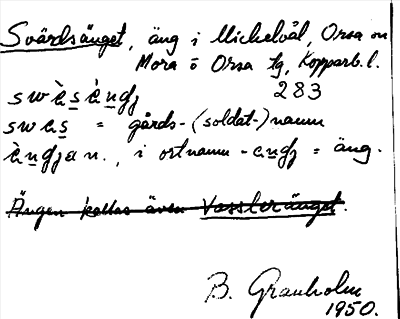 Svärdsänget, äng i Mickelvål, Orsa sn
Mora o Orsa tg, Kopparb. l.
swèsèngj 283
swes = gårds-(soldat-)namn
èngjan., i ortnamn -engj = äng.
Ängen kallas även Vassleränget.
B. Granholm
1950.